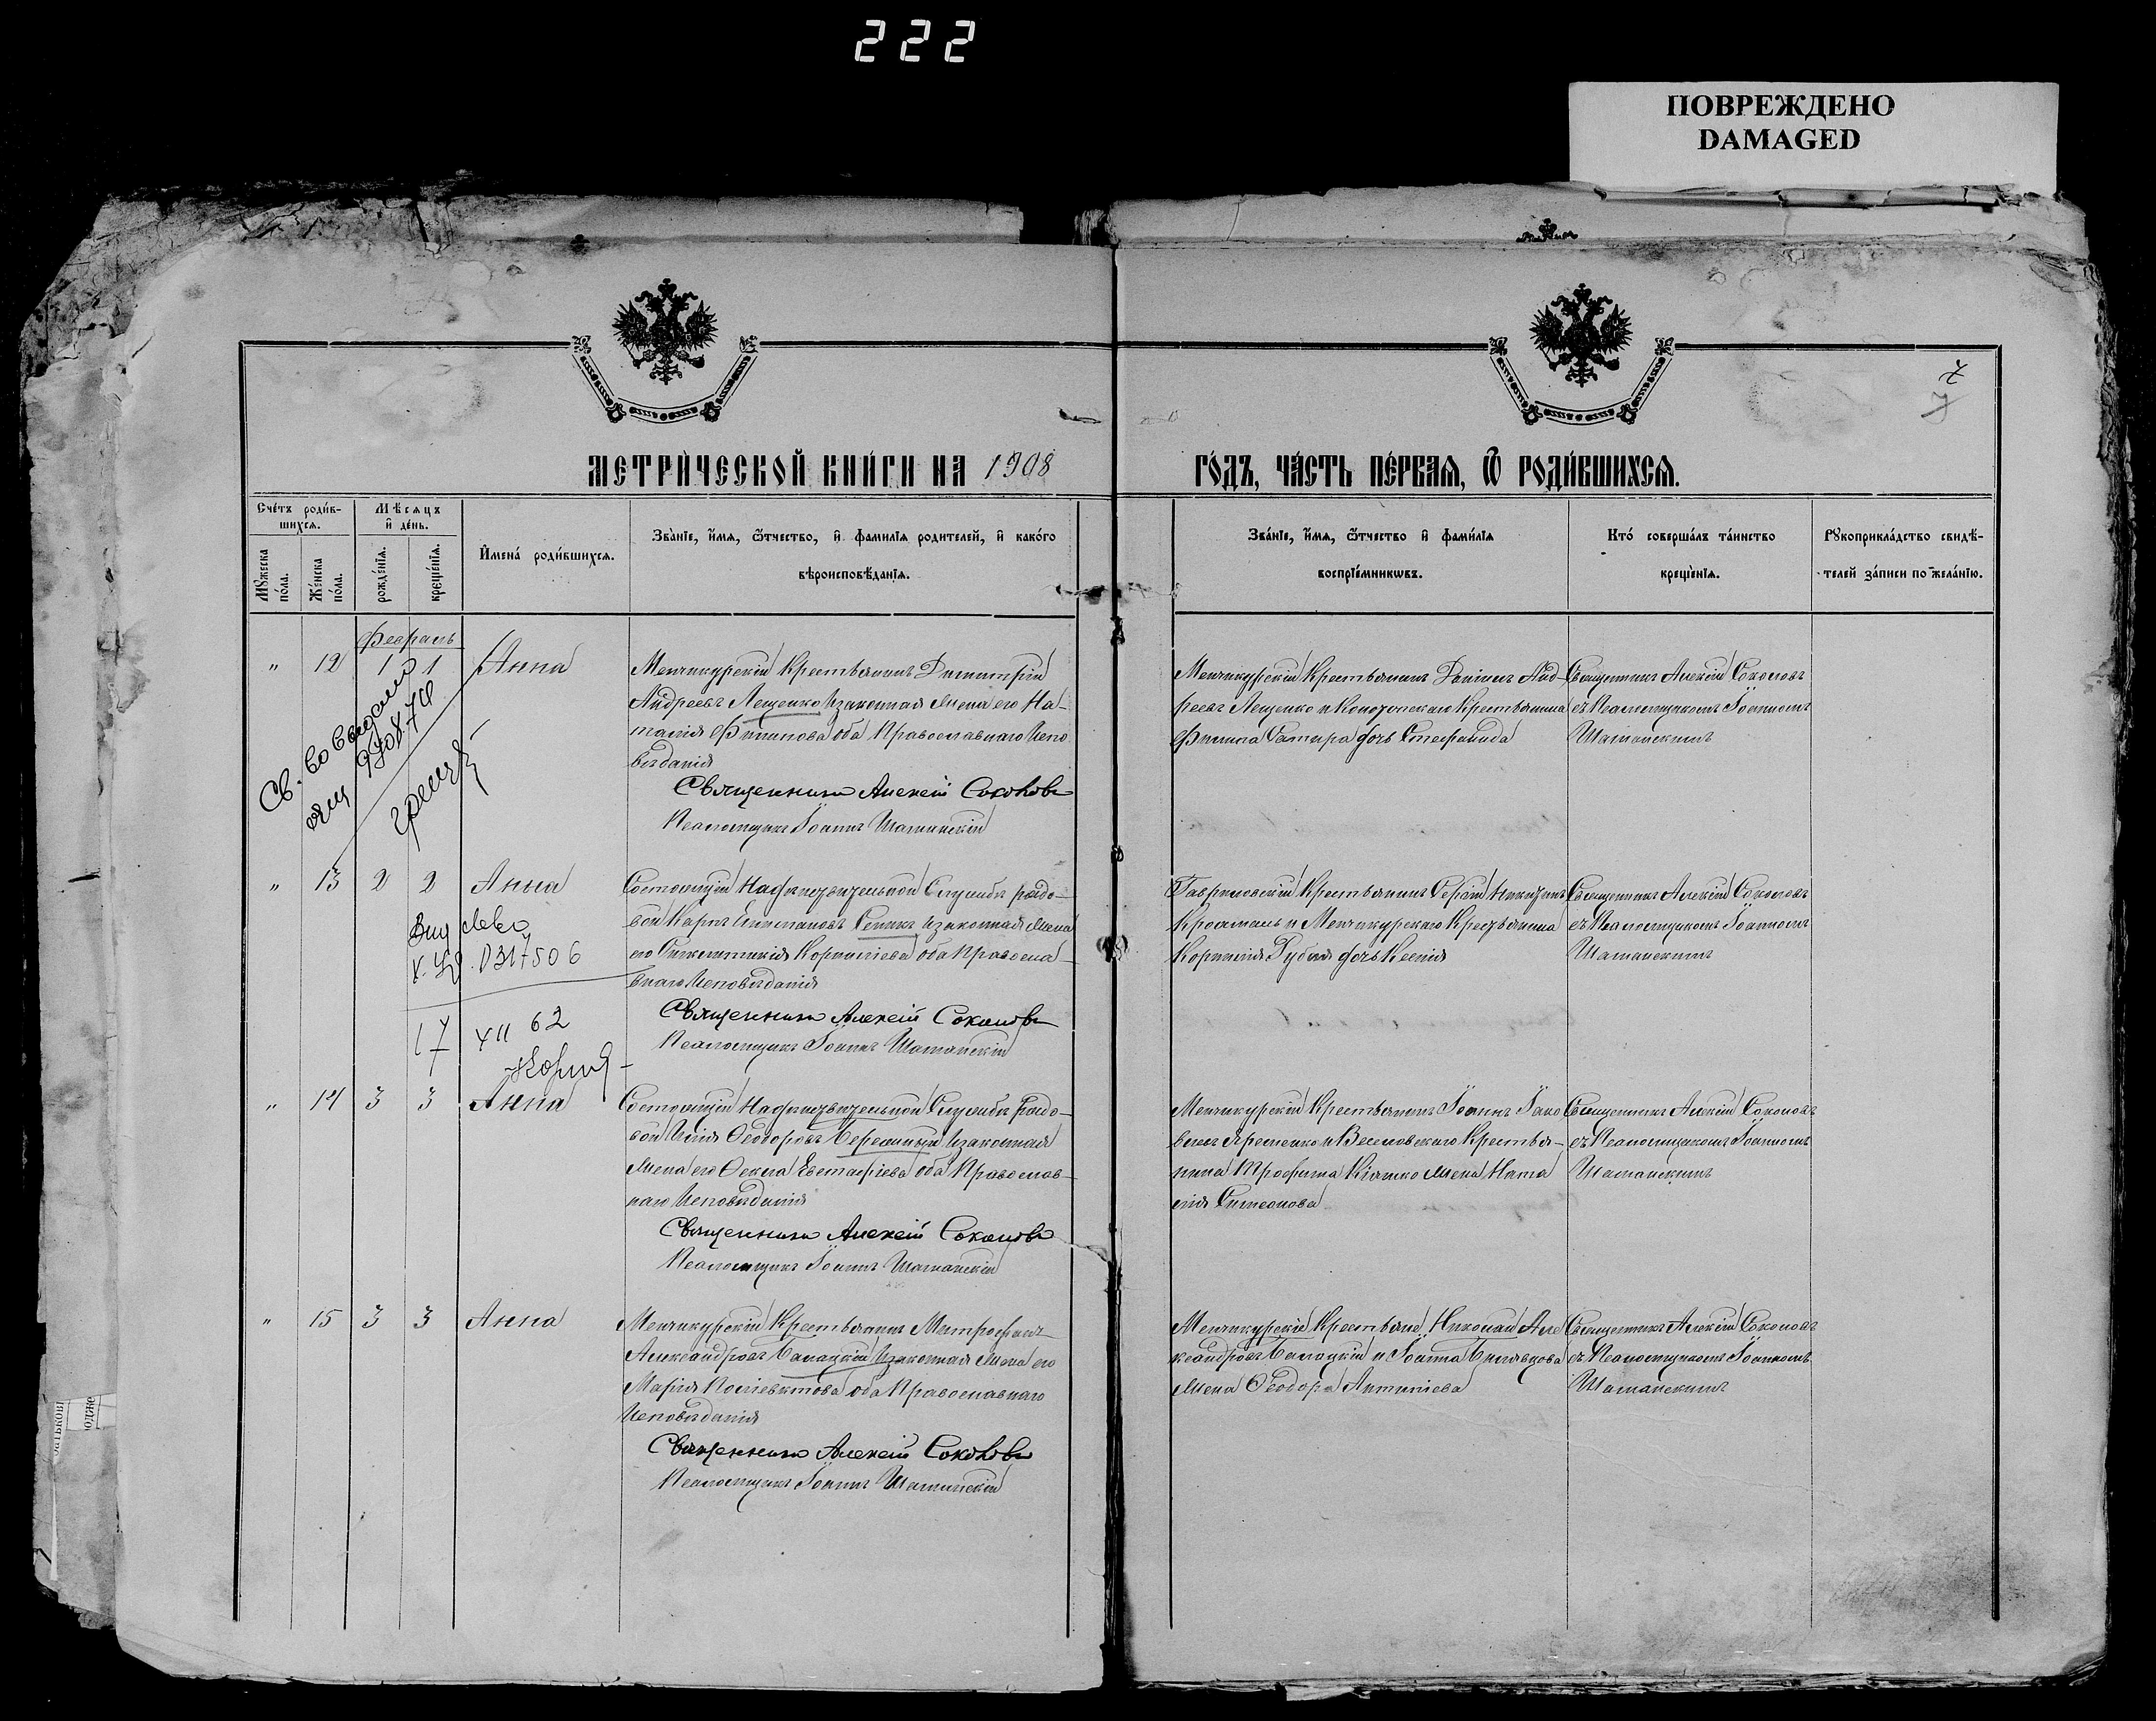 222
ПОВРЕЖДЕНО
DAMAGED
7
7
МЕТРИ́ЧЕСКОЙ КНИ́ГИ НА 1908
ГО́ДЪ, ЧА́СТЬ ПЕ́РВАѦ, Ѿ РОДИ́ВШИХСѦ.
Сче́тъ роди́в-
шихсѧ.
Мѣсѧцъ
и̂ де́нь.
Мꙋжеска по́ла.
Же́нска по́ла.
рожде́нїѧ.
креще́нїѧ.
И̂мена̀ роди́вшихсѧ.
Зва́нїе, и҆́мѧ, ѻ҆́тчество, и҆ фамилїѧ родителей, и҆ како́гѡ
вѣроисповѣ́данїѧ.
Зва́нїе, и҆́мѧ, ѻ҆́тчество и҆ фами́лїѧ
воспрїе́мникѡвъ.
Кто̀ соверша́лъ та́инство
креще́нїѧ.
Рꙋкоприкла́дство свидѣ́-
телей за́писи по жела́нїю.
Февраль
" 12 1 1 Анна
Менчикурскій Крестьянинъ Димитрій
Андреевъ Лещенко и законная жена его На-
талія Филипова оба Православнаго Испо
вѣданія
Священникъ Алексій Соколовъ
Псаломщикъ Іоаннъ Шаманскій
Менчикурскій Крестьянинъ Даніилъ Анд-
реевъ Лещенко и Крестьянина
Филипа дочь Стефанида
Священникъ Алексій Соколовъ
съ Псаломщикомъ Іоанномъ
Шаманскимъ
Св.
" 13 2 2 Анна
Состоящій На дѣйствительной Службѣ рядо-
вой Карпъ и законная жена
его Корниліева оба Правосла-
внаго Исповѣданія
Священникъ Алексій Соколовъ
Псаломщикъ Іоаннъ Шаманскій
Гавриловскій Крестьянинъ Сергій Никитинъ
и Менчикурскаго Крестьянина
Корнилія дочь Ксенія
Священникъ Алексій Соколовъ
съ Псаломщикомъ Іоанномъ
Шаманскимъ
0317506
17 XII 62
" 14 3 3 Анна
Состоящій На дѣйствительной Службѣ Рядо-
вой Илія Ѳеодоровъ и законная
жена его Ѳекла Евстафіева оба Православ-
наго Исповѣданія
Священникъ Алексій Соколовъ
Псаломщикъ Іоаннъ Шаманскій
Менчикурскій Крестьянинъ Іоаннъ Іако
влевъ Яременко и Веселовскаго Крестья-
нина Трофима Кіяшко жена Ната
лія Симеонова
Священникъ Алексій Соколовъ
съ Псаломщикомъ Іоанномъ
Шаманскимъ
" 15 3 3 Анна
Менчикурскій Крестьянинъ Митрофанъ
Александровъ Балацкій и законная жена его
Марія Поліевктова оба Православнаго
Исповѣданія
Священникъ Алексій Соколовъ
Псаломщикъ Іоаннъ Шаманскій
Менчикурскіе Крестьяне Николай Але
ксандровъ Балацкій и
жена Ѳеодора Антипіева
Священникъ Алексій Соколовъ
съ Псаломщикомъ Іоанномъ
Шаманскимъ